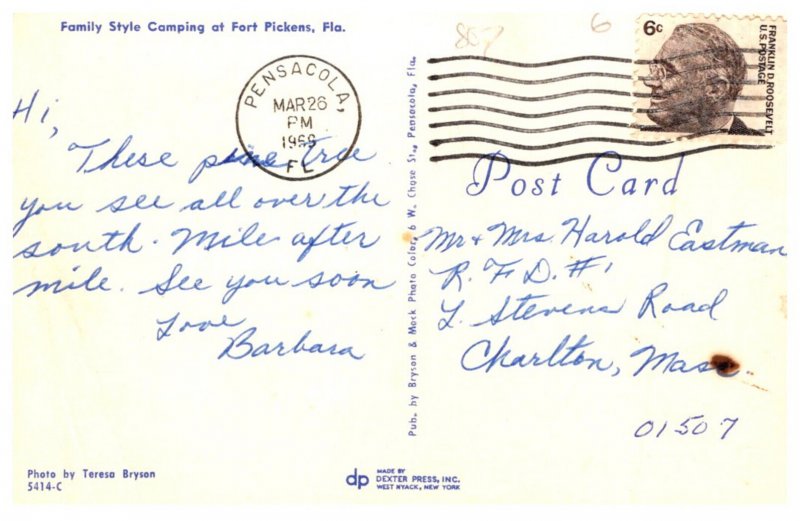 Family Style Camping at Fort Pickens, Fla.
857
6
6c
FRANKLIN D. ROOSEVELT
U.S. POSTAGE
PENSACOLA,
MAR 26
PM
FL
Hi,
These pine tree
you see all over the
south. Mile after
mile. See you soon
Love
Barbara
Pub. by Bryson & Mock Photo Color, 6 W. Chase St., Pensacola, Fla.
Post Card
Mr + Mrs. Harold Eastman
R.F.D. #1
L. Stevens Road
Charlton, Mass.
01507
Photo by Teresa Bryson
5414-C
dp
MADE BY
DEXTER PRESS, INC.
WEST NYACK, NEW YORK